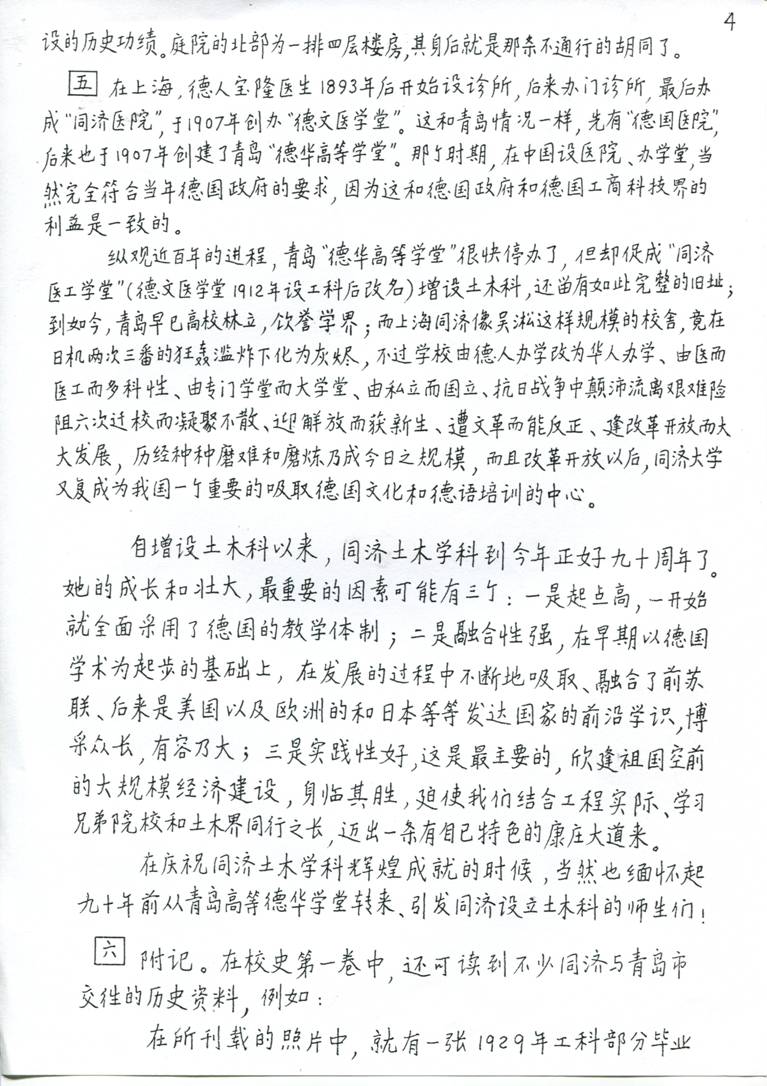 4
设的历史功绩。庭院的北部为一排四层楼房,其身后就是那条不通行的胡同了。
五 在上海,德人宝隆医生1893年后开始设诊所,后来办门诊所,最后办
成“同济医院”,于1907年创办“德文医学堂”。这和青岛情况一样,先有“德国医院”,
后来也于1907年创建了青岛“德华高等学堂”。那个时期,在中国设医院、办学堂,当
然完全符合当年德国政府的要求,因为这和德国政府和德国工商科技界的
利益是一致的。
纵观近百年的进程,青岛“德华高等学堂”很快停办了,但却促成“同济
医工学堂”(德文医学堂1912年设工科后改名)增设土木科,还留有如此完整的旧址;
到如今,青岛早已高校林立,饮誉学界;而上海同济像吴淞这样规模的校舍,竟在
日机两次三番的狂轰滥炸下化为灰烬,不过学校由德人办学改为华人办学、由医而
医工而多科性、由专门学堂而大学堂、由私立而国立、抗日战争中颠沛流离艰难险
阻六次迁校而凝聚不散、迎解放而获新生、遭文革而能反正、逢改革开放而大
大发展,历经种种磨难和磨炼乃成今日之规模,而且改革开放以后,同济大学
又复成为我国一个重要的吸取德国文化和德语培训的中心。
自增设土木科以来,同济土木学科到今年正好九十周年了。
她的成长和壮大,最重要的因素可能有三个:一是起点高,一开始
就全面采用了德国的教学体制;二是融合性强,在早期以德国
学术为起步的基础上,在发展的过程中不断地吸取、融合了前苏
联、后来是美国以及欧洲的和日本等等发达国家的前沿学识,博
采众长,有容乃大;三是实践性好,这是最主要的,欣逢祖国空前
的大规模经济建设,身临其胜,迫使我们结合工程实际、学习
兄弟院校和土木界同行之长,迈出一条有自己特色的康庄大道来。
在庆祝同济土木学科辉煌成就的时候,当然也缅怀起
九十年前从青岛高等德华学堂转来、引发同济设立土木科的师生们!
六 附记。在校史第一卷中,还可读到不少同济与青岛市
交往的历史资料,例如:
在所刊载的照片中,就有一张1929年工科部分毕业